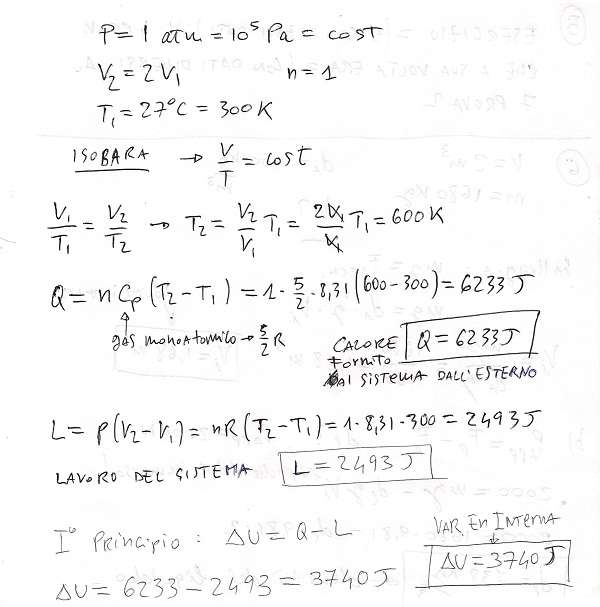 P = 1 atm = 10⁵ Pa = cost
V₂ = 2V₁ n = 1
T₁ = 27°C = 300 K
ISOBARA → V/T = cost
V₁/T₁ = V₂/T₂ → T₂ = V₂/V₁ T₁ = 2V₁/V₁ T₁ = 600 K
Q = n Cp (T₂ - T₁) = 1 · 5/2 · 8,31 (600 - 300) = 6233 J
gas monoatomico → 5/2 R
CALORE Q = 6233 J
FORNITO
al SISTEMA DALL'ESTERNO
L = P(V₂ - V₁) = nR (T₂ - T₁) = 1 · 8,31 · 300 = 2493 J
LAVORO DEL SISTEMA L = 2493 J
I° Principio : ΔU = Q - L
VAR En INTERNA
ΔU = 6233 - 2493 = 3740 J
ΔU = 3740 J